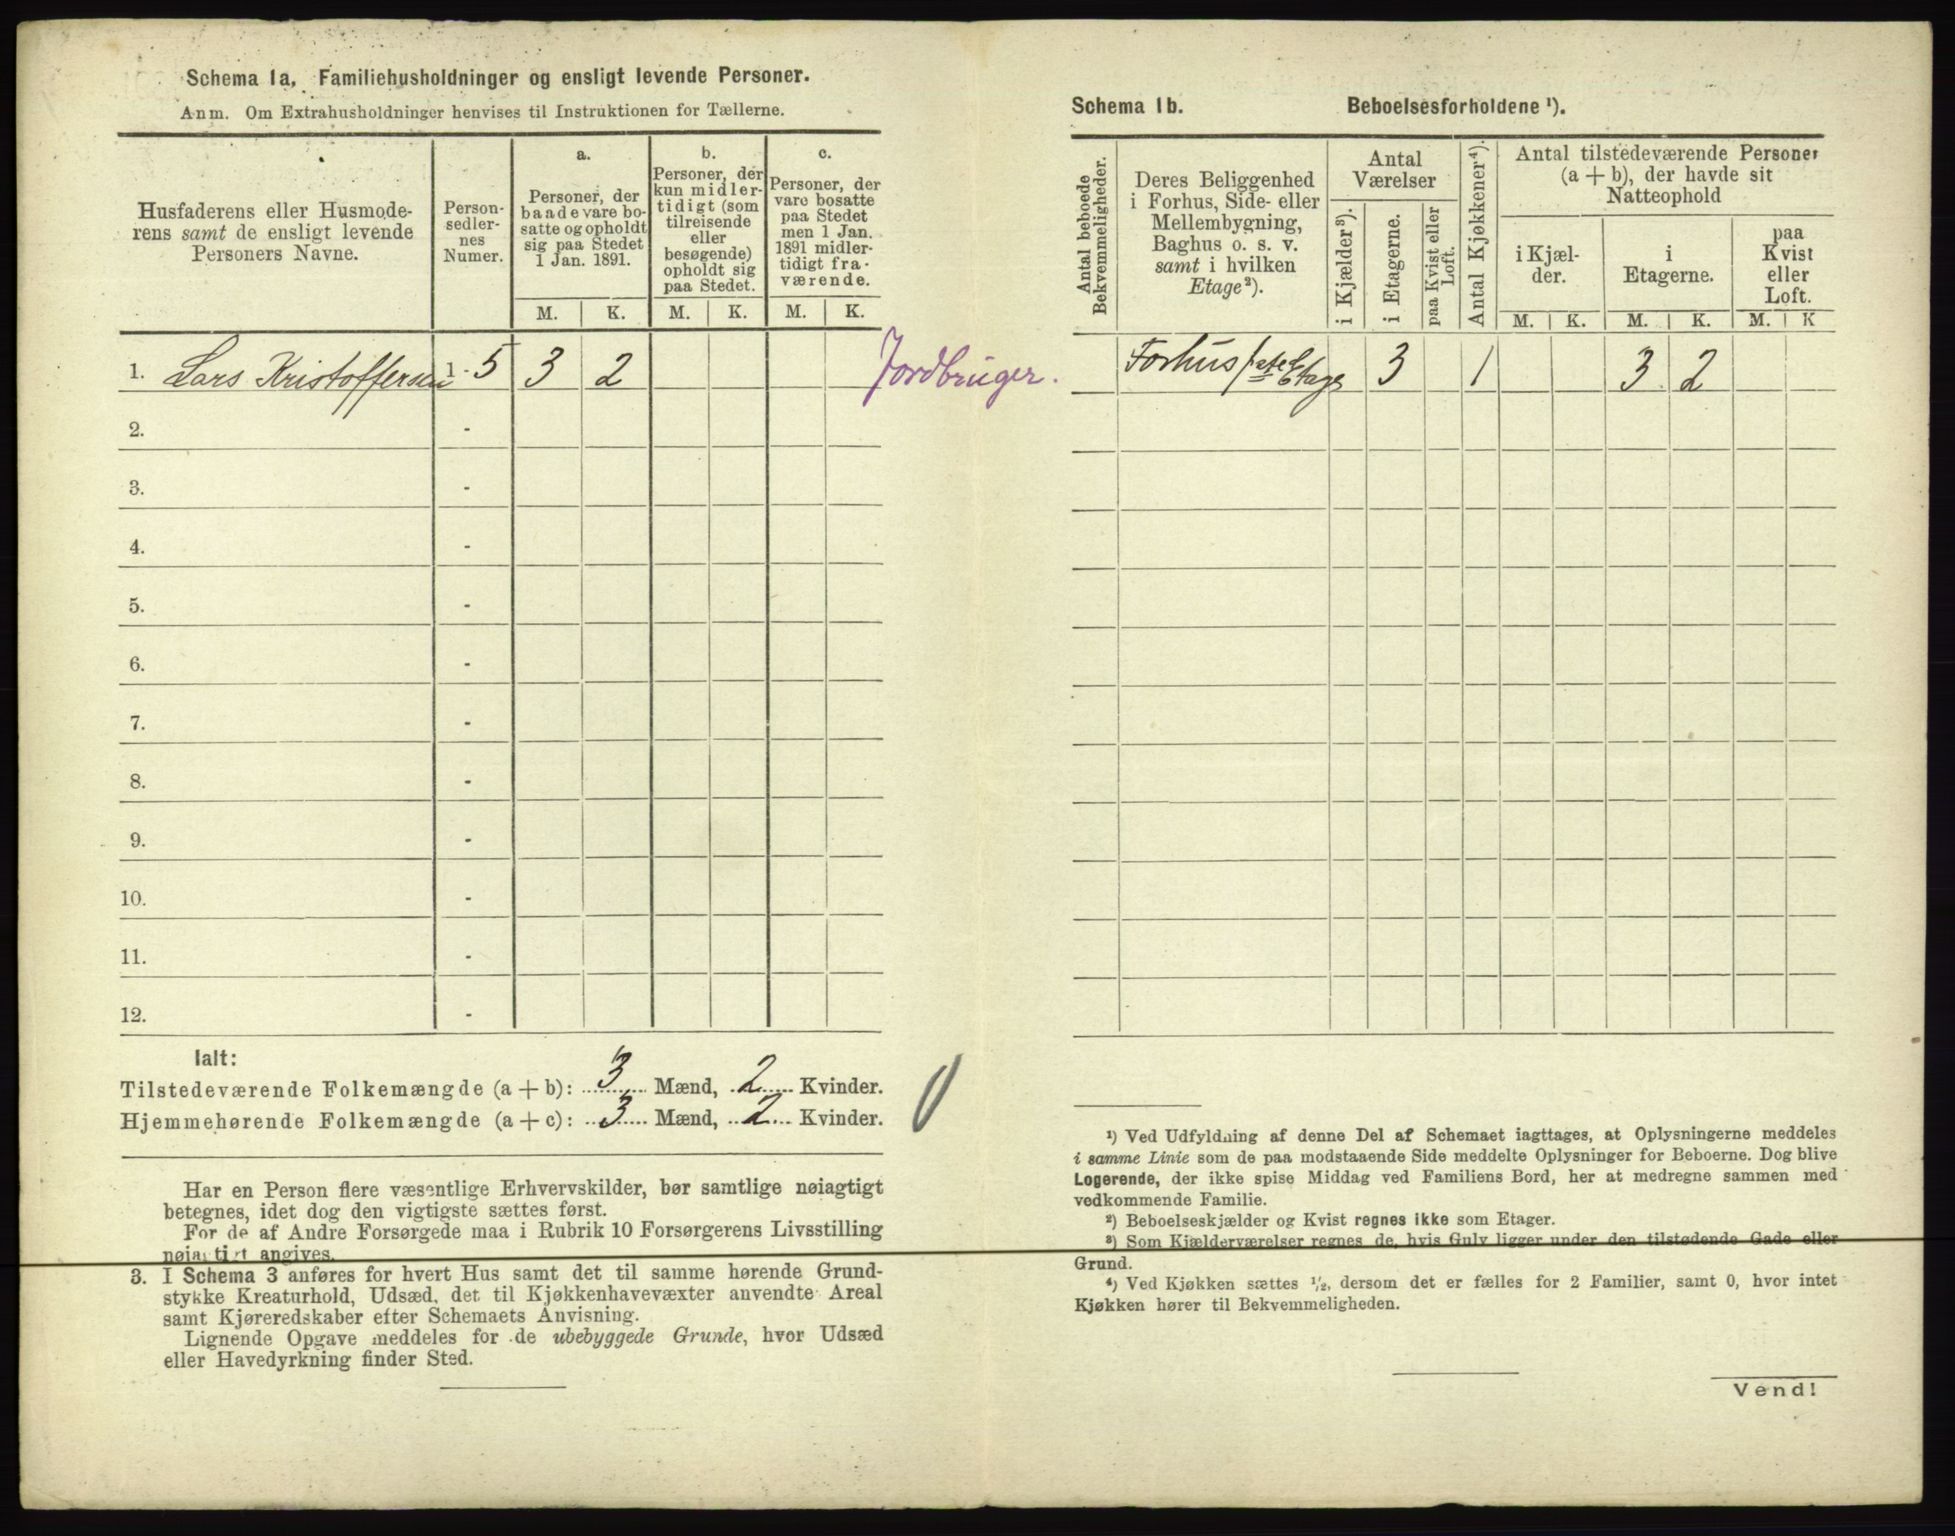 Schema 1a. Familiehusholdninger og ensligt levende Personer.
Anm. Om Extrahusholdninger henvises til Instruktionen for Tællerne.
Husfaderens eller Husmode-
rens samt de ensligt levende
Personers Navne.
Person-
sedler-
nes
Numer.
a.
Personer, der
baade vare bo-
satte og opholdt
sig paa Stedet
1 Jan. 1891.
b.
Personer, der
kun midler-
tidigt (som
tilreisende
eller
besøgende)
opholdt sig
paa Stedet.
c.
Personer, der
vare bosatte
paa Stedet
men 1 Jan.
1891 midler-
tidigt fra-
værende.
M. K. M. K. M. K.
1. Lars Kristoffersen 1 - 5 3 2 Jordbruger.
2. -
3. -
4. -
5. -
6. -
7. -
8. -
9. -
10. -
11. -
12. -
Ialt:
Tilstedeværende Folkemængde (a + b): 3 Mænd, 2 Kvinder.
Hjemmehørende Folkemængde (a + c): 3 Mænd, 2 Kvinder.
Har en Person flere væsentlige Erhvervskilder, bør samtlige nøiagtigt
betegnes, idet dog den vigtigste sættes først.
For de af Andre Forsørgede maa i Rubrik 10 Forsørgerens Livsstilling
nøiagtigt angives.
3. I Schema 3 anføres for hvert Hus samt det til samme hørende Grund-
stykke Kreaturhold, Udsæd, det til Kjøkkenhavevæxter anvendte Areal
samt Kjøreredskaber efter Schemaets Anvisning.
Lignende Opgave meddeles for de ubebyggede Grunde, hvor Udsæd
eller Havedyrkning finder Sted.
Schema 1b. Beboelsesforholdene ¹).
Antal beboede
Bekvemmeligheder.
Deres Beliggenhed
i Forhus, Side- eller
Mellembygning,
Baghus o. s. v.
samt i hvilken
Etage²).
Antal
Værelser
i Kjælder³).
i Etagerne.
paa Kvist eller
Loft.
Antal Kjøkkener⁴).
Antal tilstedeværende Personer
(a + b), der havde sit
Natteophold
i Kjæl-
der.
i
Etagerne.
paa
Kvist
eller
Loft.
M. K. M. K. M. K
Forhus 1ste Etage 3 1 3 2
¹) Ved Udfyldning af denne Del af Schemaet iagttages, at Oplysningerne meddeles
i samme Linie som de paa modstaaende Side meddelte Oplysninger for Beboerne. Dog blive
Logerende, der ikke spise Middag ved Familiens Bord, her at medregne sammen med
vedkommende Familie.
²) Beboelseskjælder og Kvist regnes ikke som Etager.
³) Som Kjælderværelser regnes de, hvis Gulv ligger under den tilstødende Gade eller
Grund.
⁴) Ved Kjøkken sættes ¹/₂, dersom det er fælles for 2 Familier, samt 0, hvor intet
Kjøkken hører til Bekvemmeligheden.
Vend!